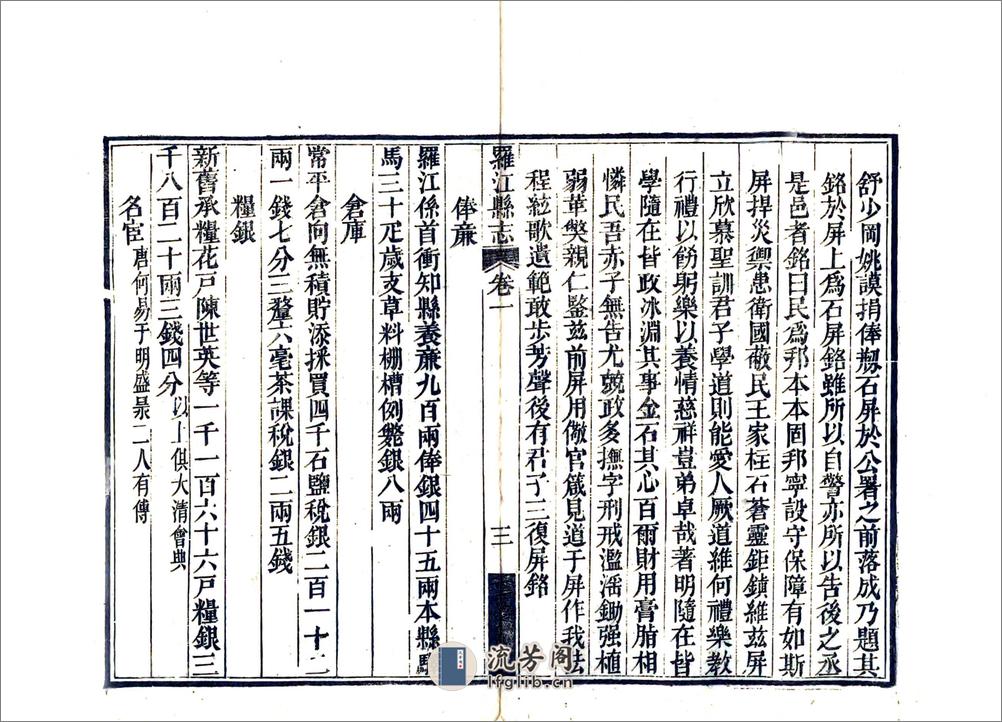 舒少岡姚謨捐俸剏石屏於公署之前落成乃題其
銘於屏上爲石屏銘雖所以自警亦所以告後之丞
是邑者銘曰民爲邦本本固邦寧設守保障有如斯
屏捍災禦患衛國蔽民王家柱石蒼靈鉅鎮維兹屏
立欣慕聖訓君子學道則能愛人厥道維何禮樂教
行禮以飭躬樂以養情慈祥豈弟卓哉著明隨在皆
學隨在皆政冰淵其事金石其心百爾財用膏腴相
憐民吾亦子無告尤兢政多撫字刑戒濫滛鋤强植
弱革獘親仁鑒兹前屏用儆官箴見道于屏作我法
程絃歌遺範敢步芳聲後有君子三復屏銘
羅江縣志 卷一 三
俸廉
羅江係首衝知縣養廉九百兩俸銀四十五兩本縣驛
馬三十疋歲支草料棚槽例斃銀八兩
倉庫
常平倉向無積貯添採買四千石鹽稅銀二百一十二
兩一錢七分三釐六毫茶課稅銀二兩五錢
糧銀
新舊承糧花戸陳世英等一千一百六十六戸糧銀三
千八百二十兩三錢四分以上俱大清會典
名宦唐何易于明盛㫤二人有傳
流芳阁
lfglib.cn